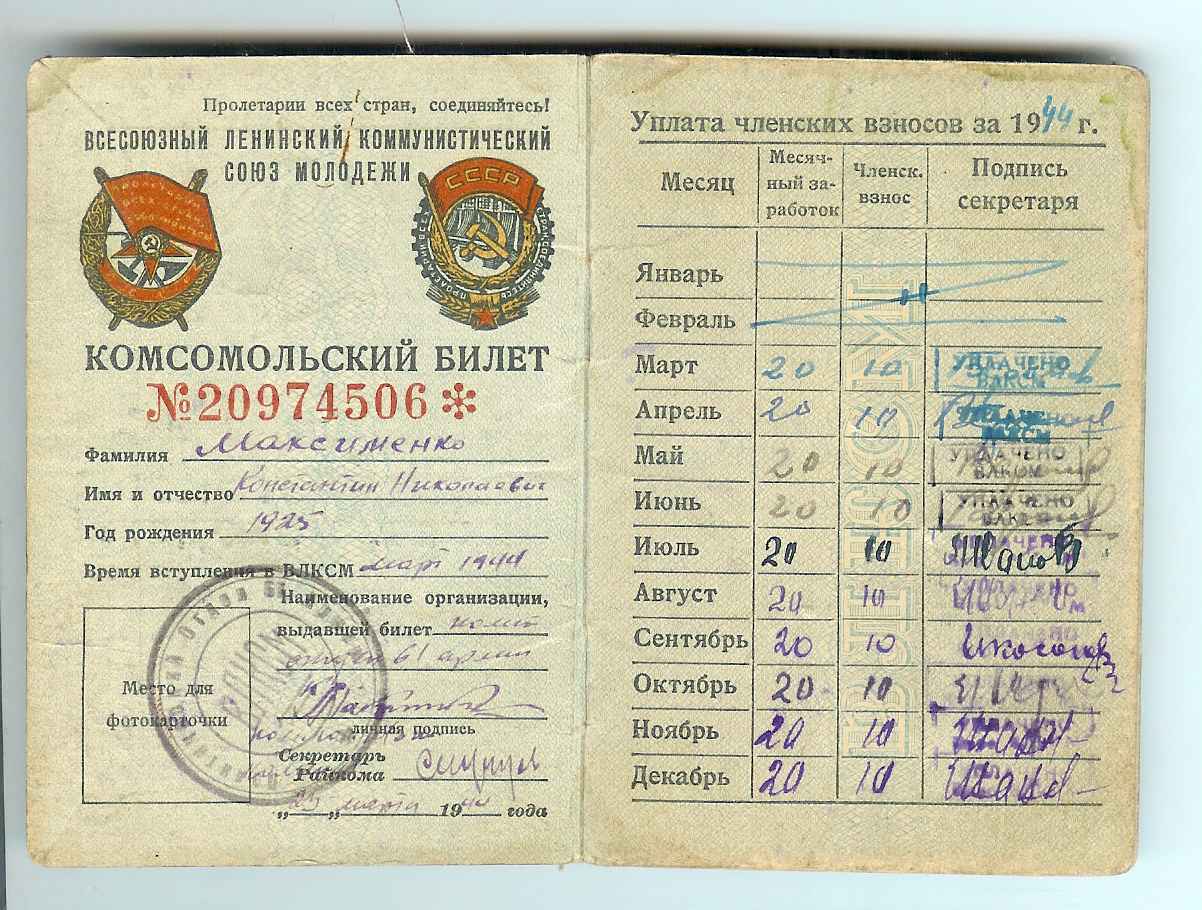 Пролетарии всех стран, соединяйтесь!
ВСЕСОЮЗНЫЙ ЛЕНИНСКИЙ КОММУНИСТИЧЕСКИЙ
СОЮЗ МОЛОДЕЖИ
СССР
КОМСОМОЛЬСКИЙ БИЛЕТ
№20974506*
Фамилия Максименко
Имя и отчество Константин Николаевич
Год рождения 1925
Время вступления в ВЛКСМ март 1944
Наименование организации,
выдавшей билет
61 армии
Место для
фотокарточки
личная подпись
Секретарь
Райкома
„25„ марта 1944 года
Уплата членских взносов за 1944 г.
Месяц Месяч-ный за-работок Членск. взнос Подпись секретаря
Январь
Февраль
Март 20 10 УПЛАЧЕНО ВЛКСМ
Апрель 20 10 УПЛАЧЕНО ВЛКСМ
Май 20 10 УПЛАЧЕНО ВЛКСМ
Июнь 20 10 УПЛАЧЕНО ВЛКСМ
Июль 20 10
Август 20 10
Сентябрь 20 10
Октябрь 20 10
Ноябрь 20 10
Декабрь 20 10